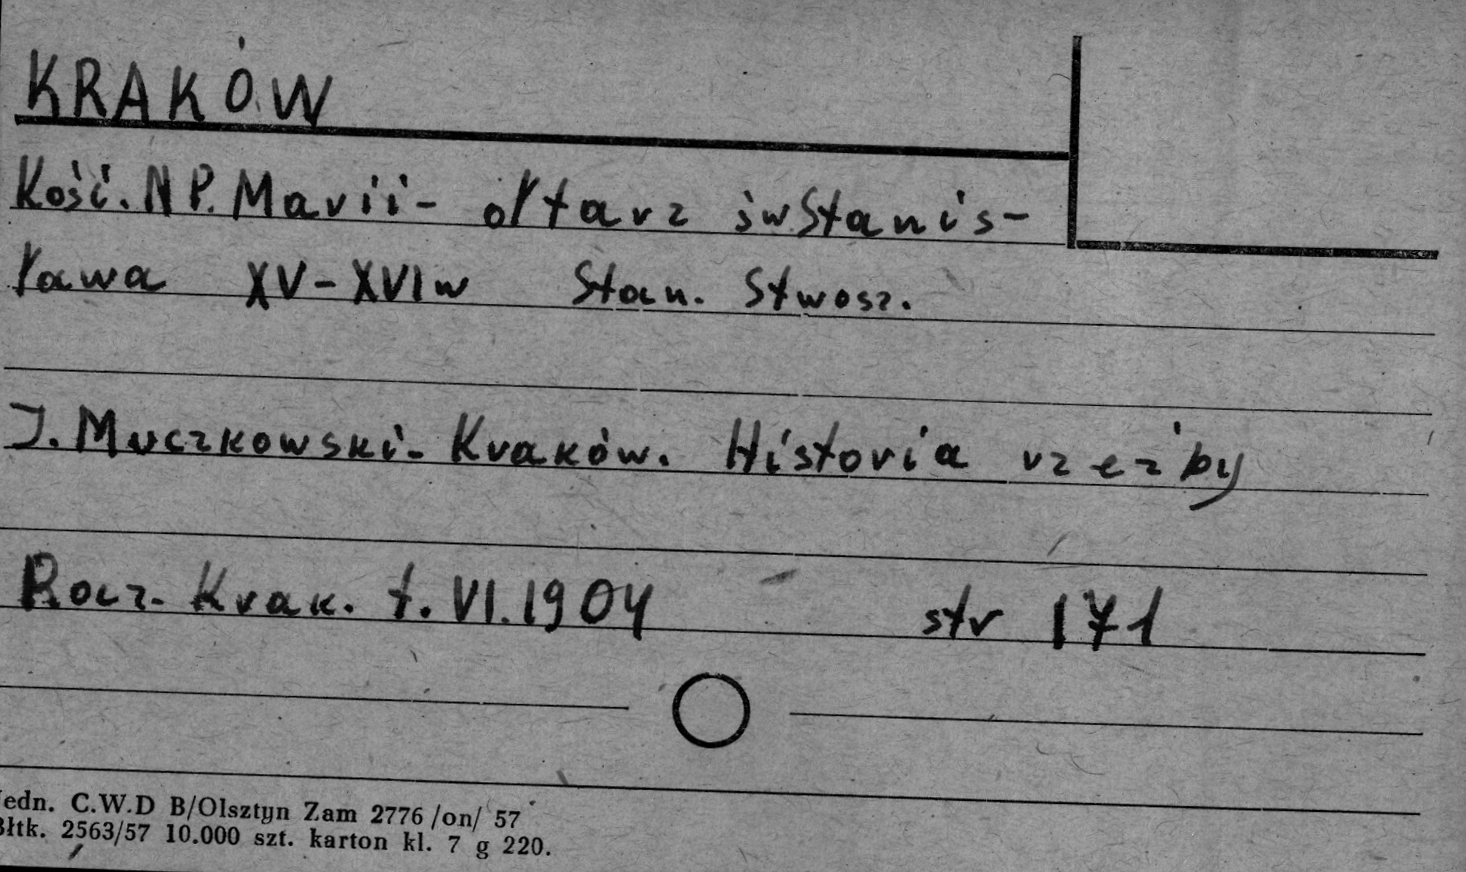 KRAKÓW
Kość. NP. Marii - ołtarz św Stanis-
ława XV - XVI w Stan. Stwosz.
J. Muczkowski - Kraków. Historia rzeźby
Rocz. Krak. t. VI. 1904 str 171
edn. C.W.D B/Olsztyn Zam 2776 /on/ 57
Błtk. 2563/57 10.000 szt. karton kl. 7 g 220.